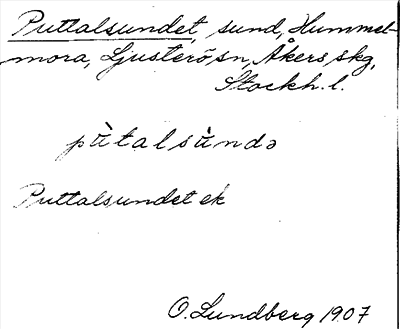 Puttalsundet, sund, Hummel-
mora, Ljusterö sn, Åkers skg,
Stockh. l.
pùtalsùndə
Puttalsundet ek
O. Lundberg 1907